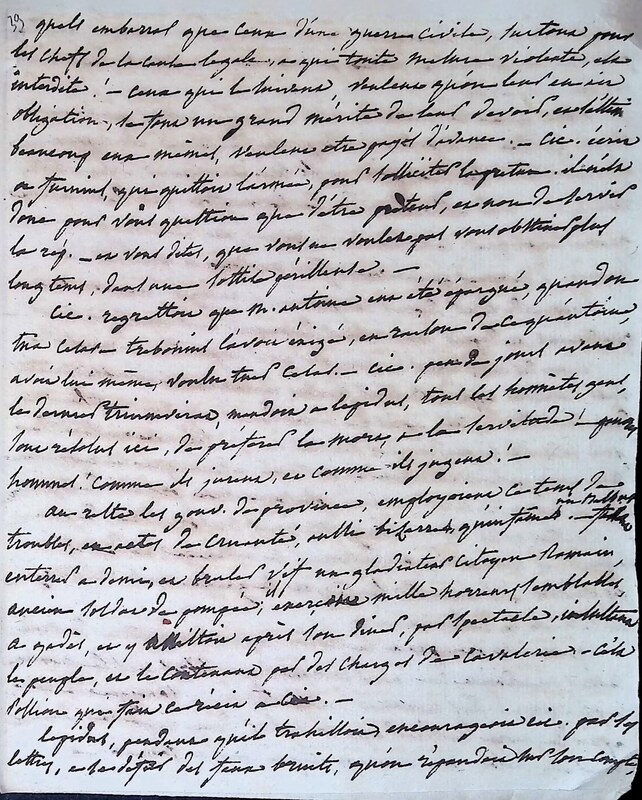 39
quels embarras que ceux d'une guerre civile, surtout pour
les chefs de la cause legale, a qui toute mesure violente, est
interdite ! — ceux qui le suivent, veulent qu'on leur en ait
obligation, se font un grand mérite de leur devoir, exaltent
beaucoup eux mêmes, veulent etre payés d'avance. — cic. écrit
a furnius, qui quittoit l'armée, pour solliciter la preture. il n'est
donc pour vous question que d'être preteur, et non de servir
la rép. — et vous dites, que vous ne voulez pas vous obstiner plus
longtems, dans une sottise périlleuse. —
cic. regrettoit que m. antoine eut été épargné, quand on
tua cesar. trebonius l'avoit exigé, en raison de ce qu'antoine,
avoit lui même, voulu tuer cesar. — cic. peu de jours avant
le dernier triumvirat, mandoit a lepidus, tous les honnêtes gens,
sont résolus ici, de préférer la mort, a la servitude !
hommes ! comme ils jurent, et comme ils jugent ! —
au reste les gouv. de province, employoient ce tems de
troubles, en actes de cruauté, aussi bizarres, qu'infames.
enterrer a demi, et bruler vif un gladiateur citoyen Romain,
ancien soldat de pompée, mille horreurs semblables,
a gadès, et y après son diner, par spectacle,
le peuple, et le contenant par des charges de cavalerie — c'est
Pollion qui fait ce récit a cic. —
lepidus, pendant qu'il trahissoit, encourageoit cic. par ses
lettres, a se défier des faux bruits, qu'on répandoit sur son compte